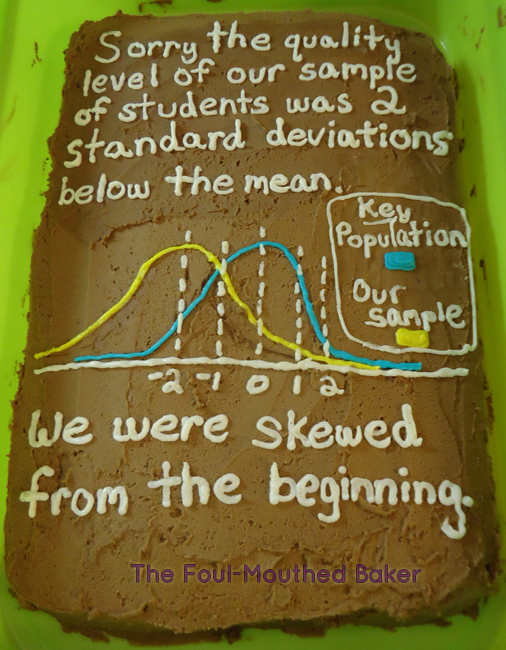 Sorry the quality
level of our sample
of students was 2
standard deviations
below the mean.
Key
Population
Our
sample
-2 -1 0 1 2
We were skewed
from the beginning.
The Foul-Mouthed Baker